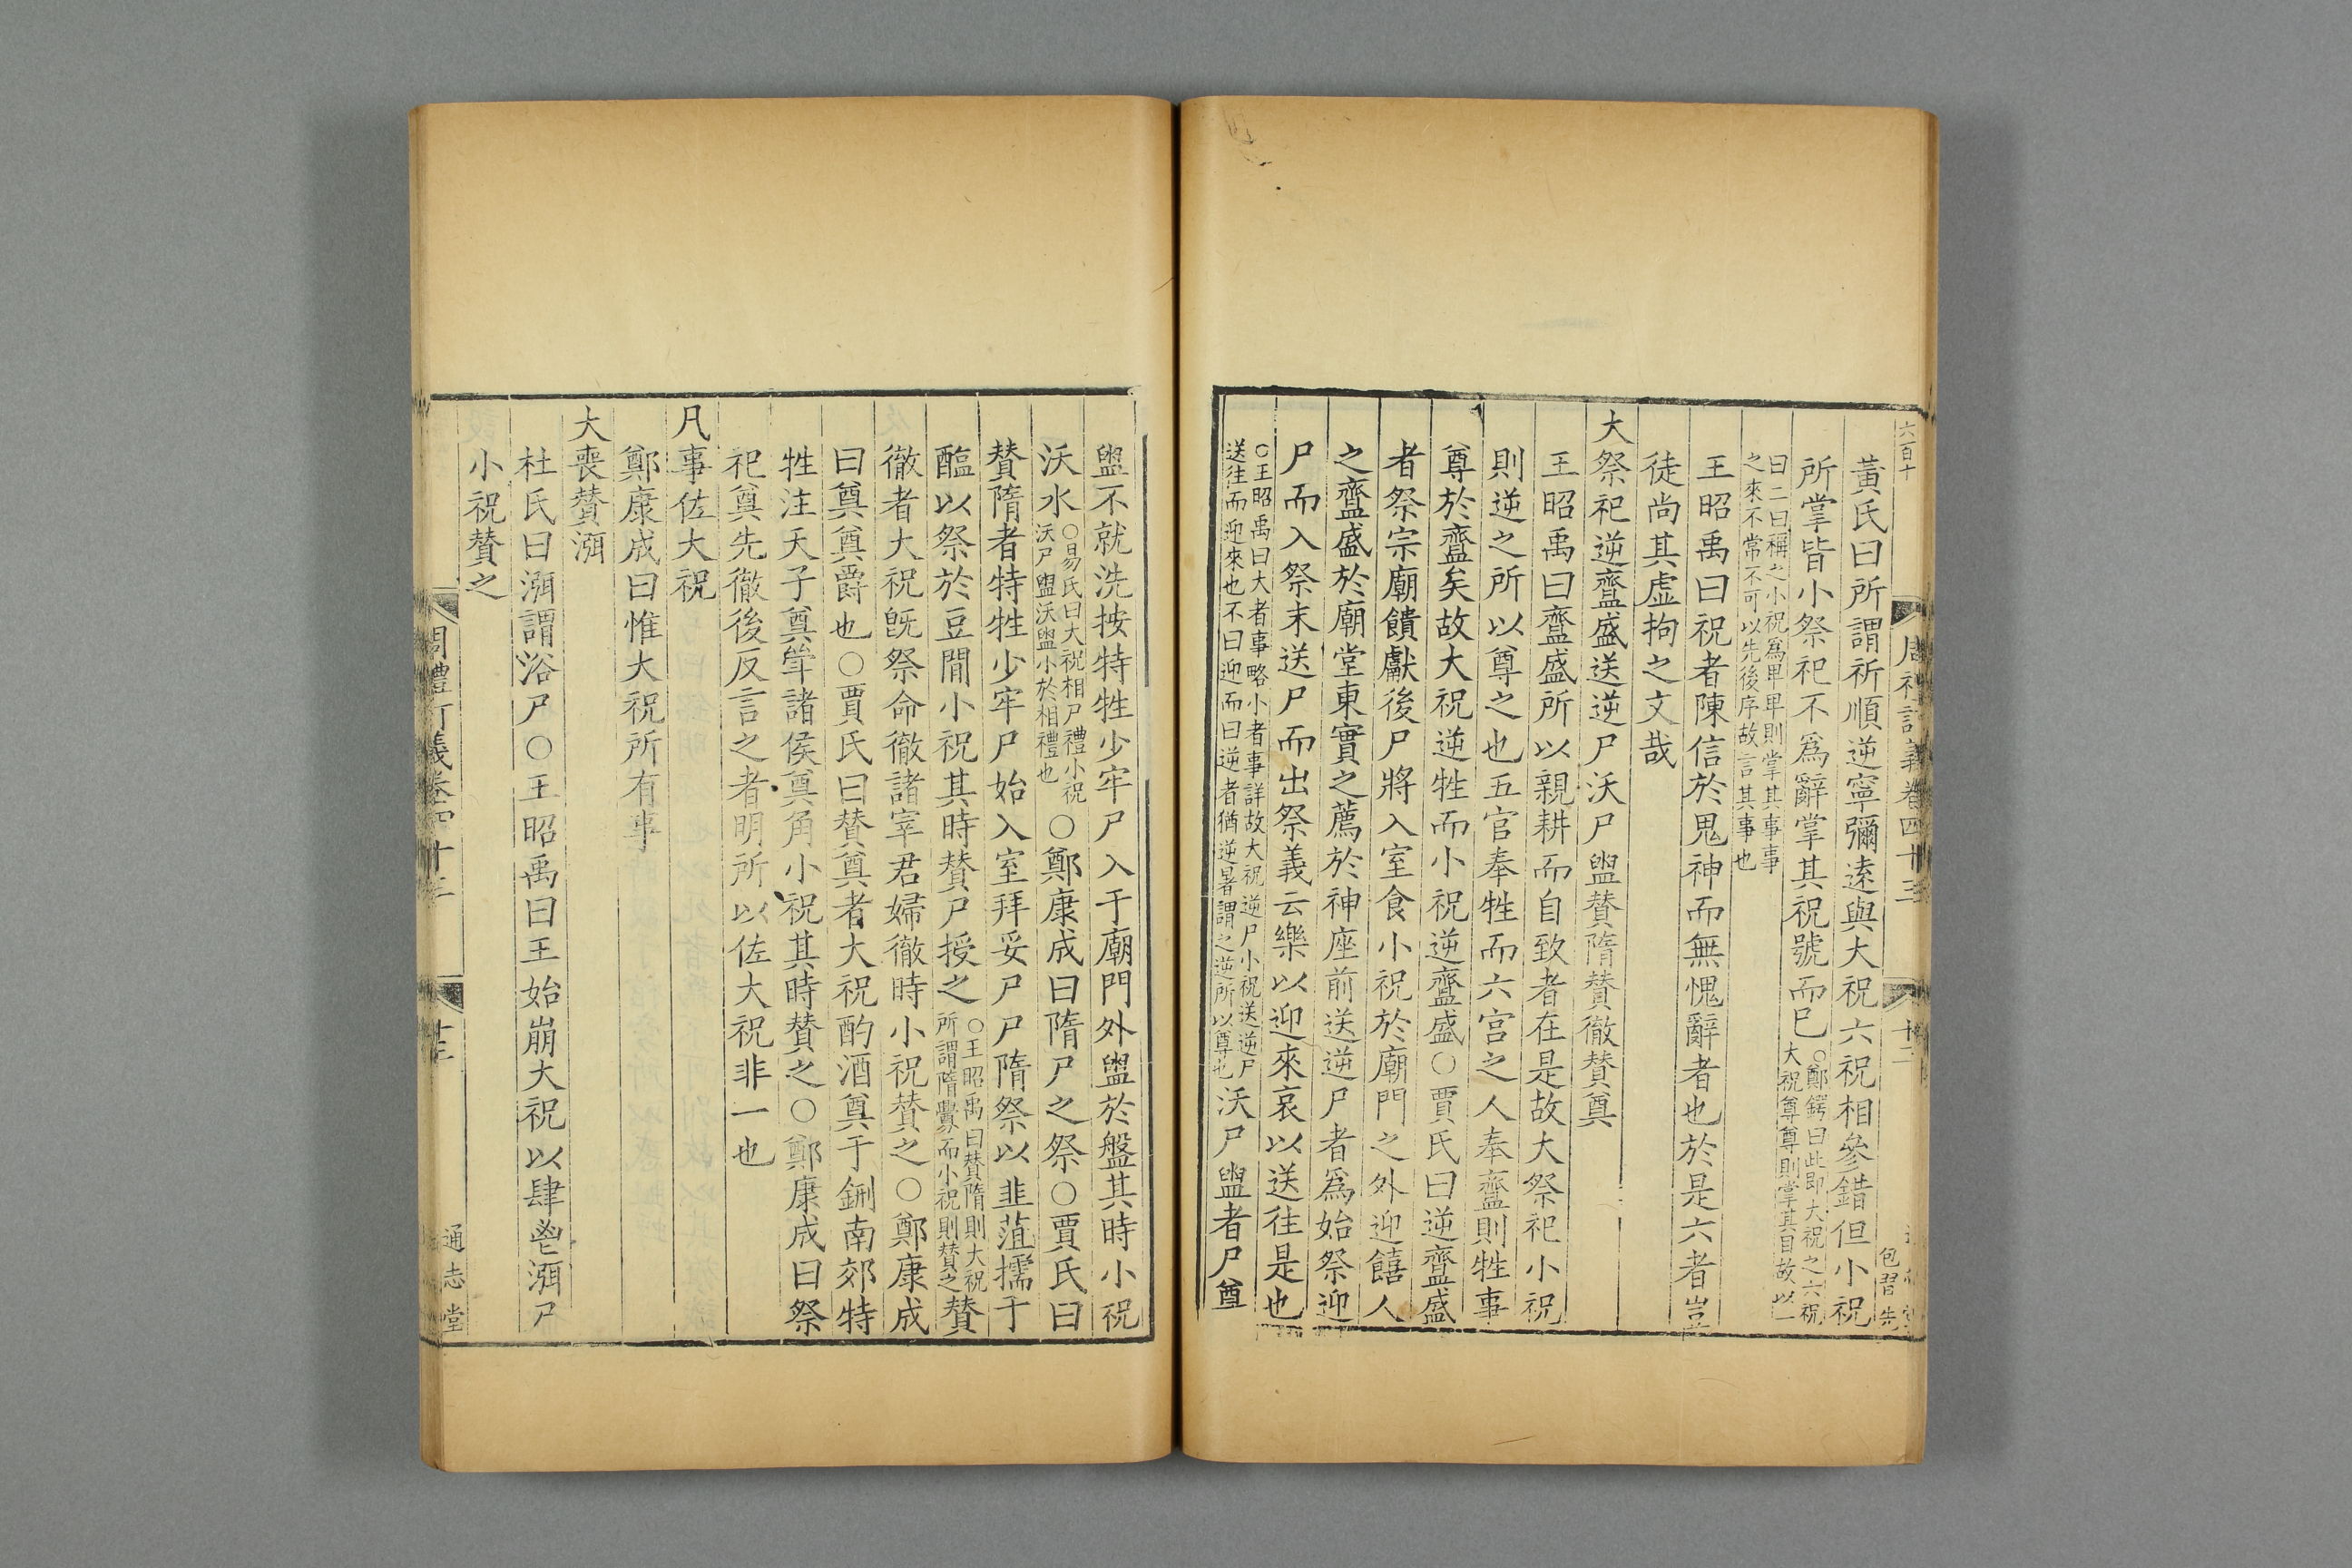 六百十
黃氏曰所謂祈順逆寧彌遠與大祝六祝相參錯但小祝
所掌皆小祭祀不爲辭掌其祝號而已○鄭鍔曰此即大祝之六祝大祝尊尊則掌其目故以一
曰二曰稱之小祝爲卑卑則掌其事事之來不常不可以先後序故言其事也
王昭禹曰祝者陳信於鬼神而無愧辭者也於是六者豈
徒尚其虛拘之文哉
大祭祀逆齍盛送逆尸沃尸盥贊隋贊徹贊奠
王昭禹曰齍盛所以親耕而自致者在是故大祭祀小祝
則逆之所以尊之也五官奉牲而六宮之人奉齍則牲事
尊於齍矣故大祝逆牲而小祝逆齍盛○賈氏曰逆齍盛
者祭宗廟饋獻後尸將入室食小祝於廟門之外迎饎人
之齍盛於廟堂東實之薦於神座前送逆尸者爲始祭迎
尸而入祭末送尸而出祭義云樂以迎來哀以送往是也
○王昭禹曰大者事略小者事詳故大祝逆尸小祝送逆尸送往而迎來也不曰迎而曰逆者猶逆暑謂之逆所以尊也沃尸盥者尸尊
周禮訂義卷四十三 十二
包習先
盥不就洗按特牲少牢尸入于廟門外盥於盤其時小祝
沃水○易氏曰大祝相尸禮小祝沃尸盥沃盥小於相禮也○鄭康成曰隋尸之祭○賈氏曰
贊隋者特牲少牢尸始入室拜妥尸尸隋祭以韭菹擩于
醢以祭於豆間小祝其時贊尸授之○王昭禹曰贊隋則大祝所謂隋釁而小祝則贊之贊
徹者大祝旣祭命徹諸宰君婦徹時小祝贊之○鄭康成
曰奠奠爵也○賈氏曰贊奠者大祝酌酒奠于鉶南郊特
牲注天子奠斝諸侯奠角小祝其時贊之○鄭康成曰祭
祀奠先徹後反言之者明所以佐大祝非一也
凡事佐大祝
鄭康成曰惟大祝所有事
大喪贊渳
杜氏曰渳謂浴尸○王昭禹曰王始崩大祝以肆鬯渳尸
小祝贊之
周禮訂義卷四十三 十三
通志堂